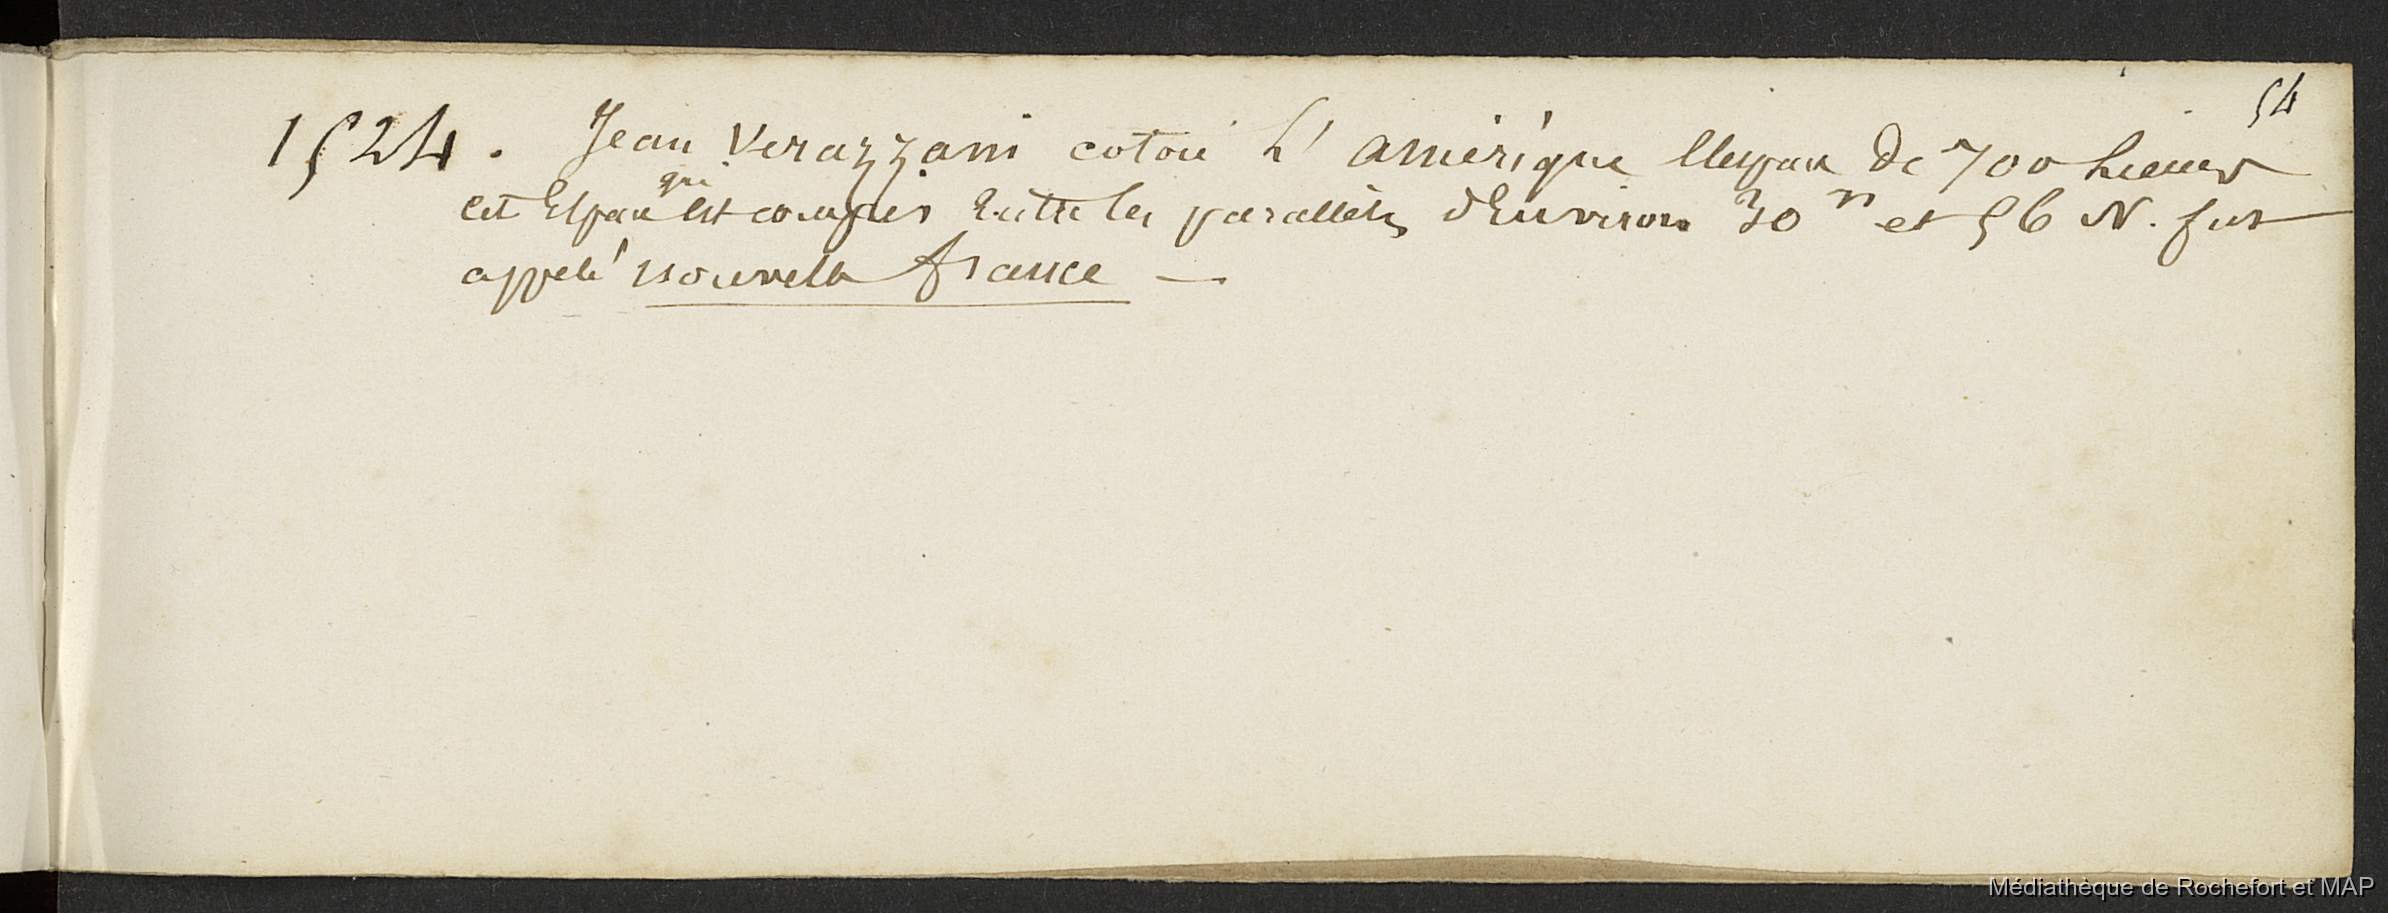 54
1524. Jean Verazzani cotoie L'amérique l'espace de 700 Lieues
cet Espace qui est compris Entre les parallèles d'Environ 30 n et 56 N. fut
appelé nouvelle france —
Médiathèque de Rochefort et MAP